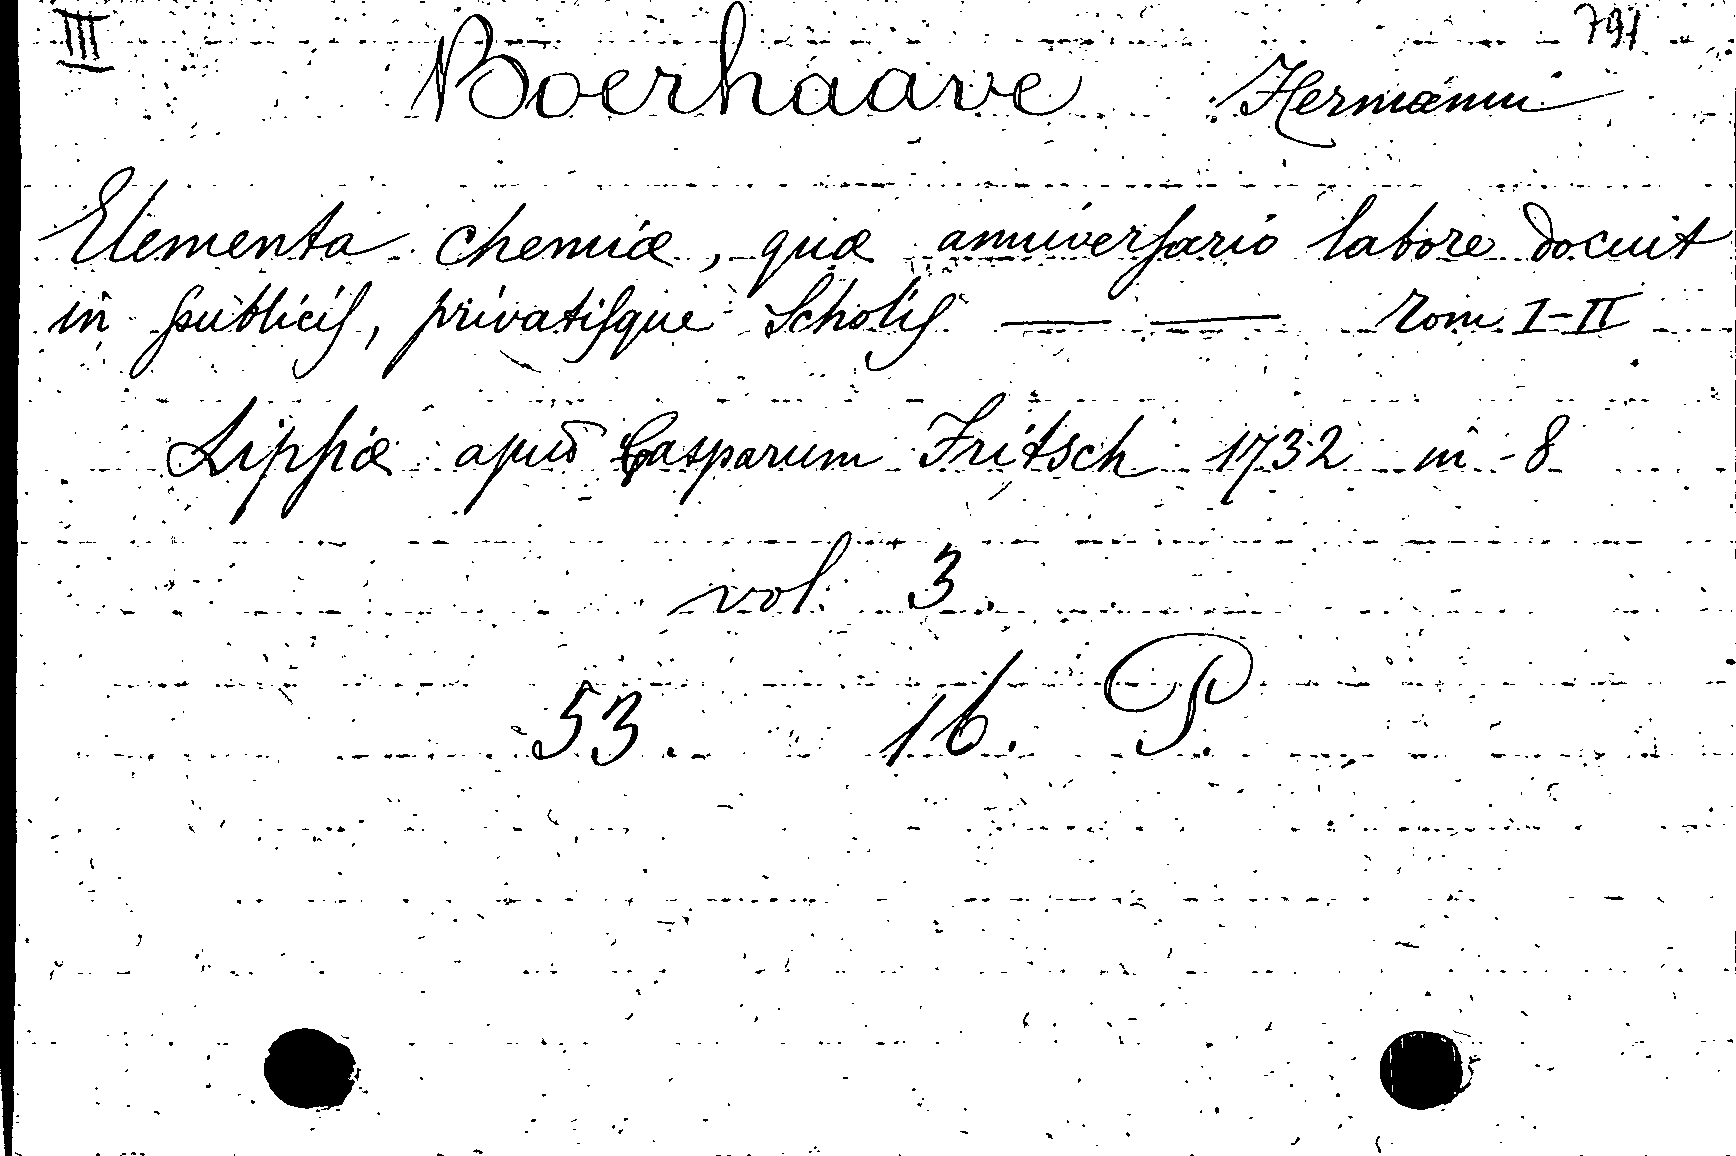 III 791
Boerhaave Hermanni
Elementa chemiæ, quæ anniverſario labore docuit
in publiciſ, privatiſque Scholiſ — — Tom I-II
Lippiæ apud Casparum Fritsch 1732 in-8
vol. 3.
53. 16. P.